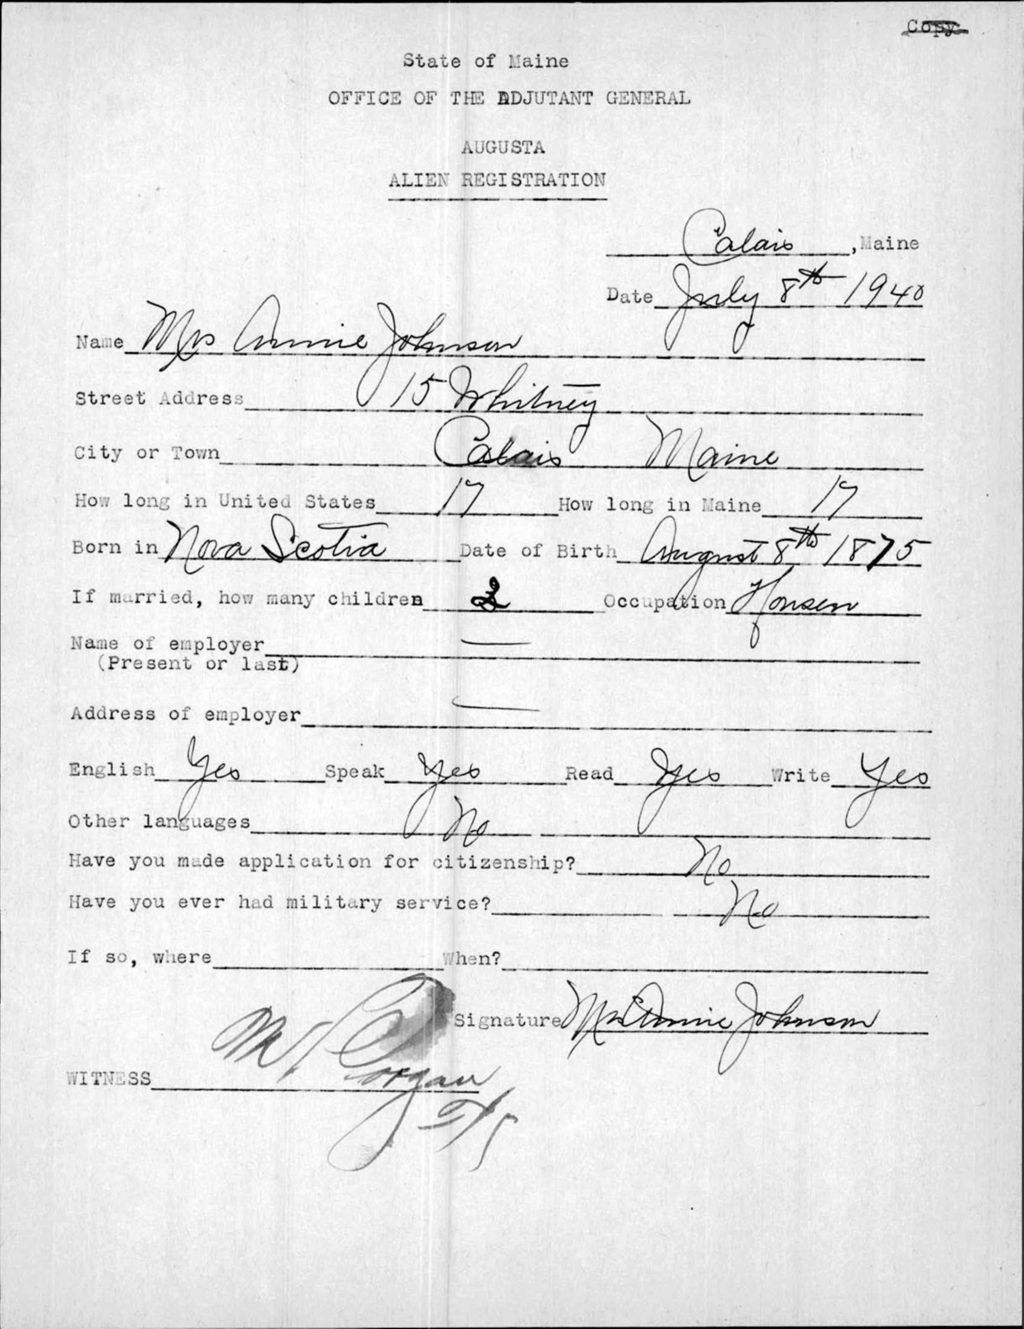 Copy
State of Maine
OFFICE OF THE ADJUTANT GENERAL
AUGUSTA
ALIEN REGISTRATION
Calais, Maine
Date July 8th 1940
Name Mrs Annie Johnson
Street Address 15 Whitney
City or Town Calais Maine
How long in United States 17 How long in Maine 17
Born in Nova Scotia Date of Birth August 8th 1875
If married, how many children 2 Occupation
Name of employer —
(Present or last)
Address of employer —
English Yes Speak Yes Read Yes Write Yes
Other languages No
Have you made application for citizenship? No
Have you ever had military service? No
If so, where When?
Signature Mrs Annie Johnson
WITNESS